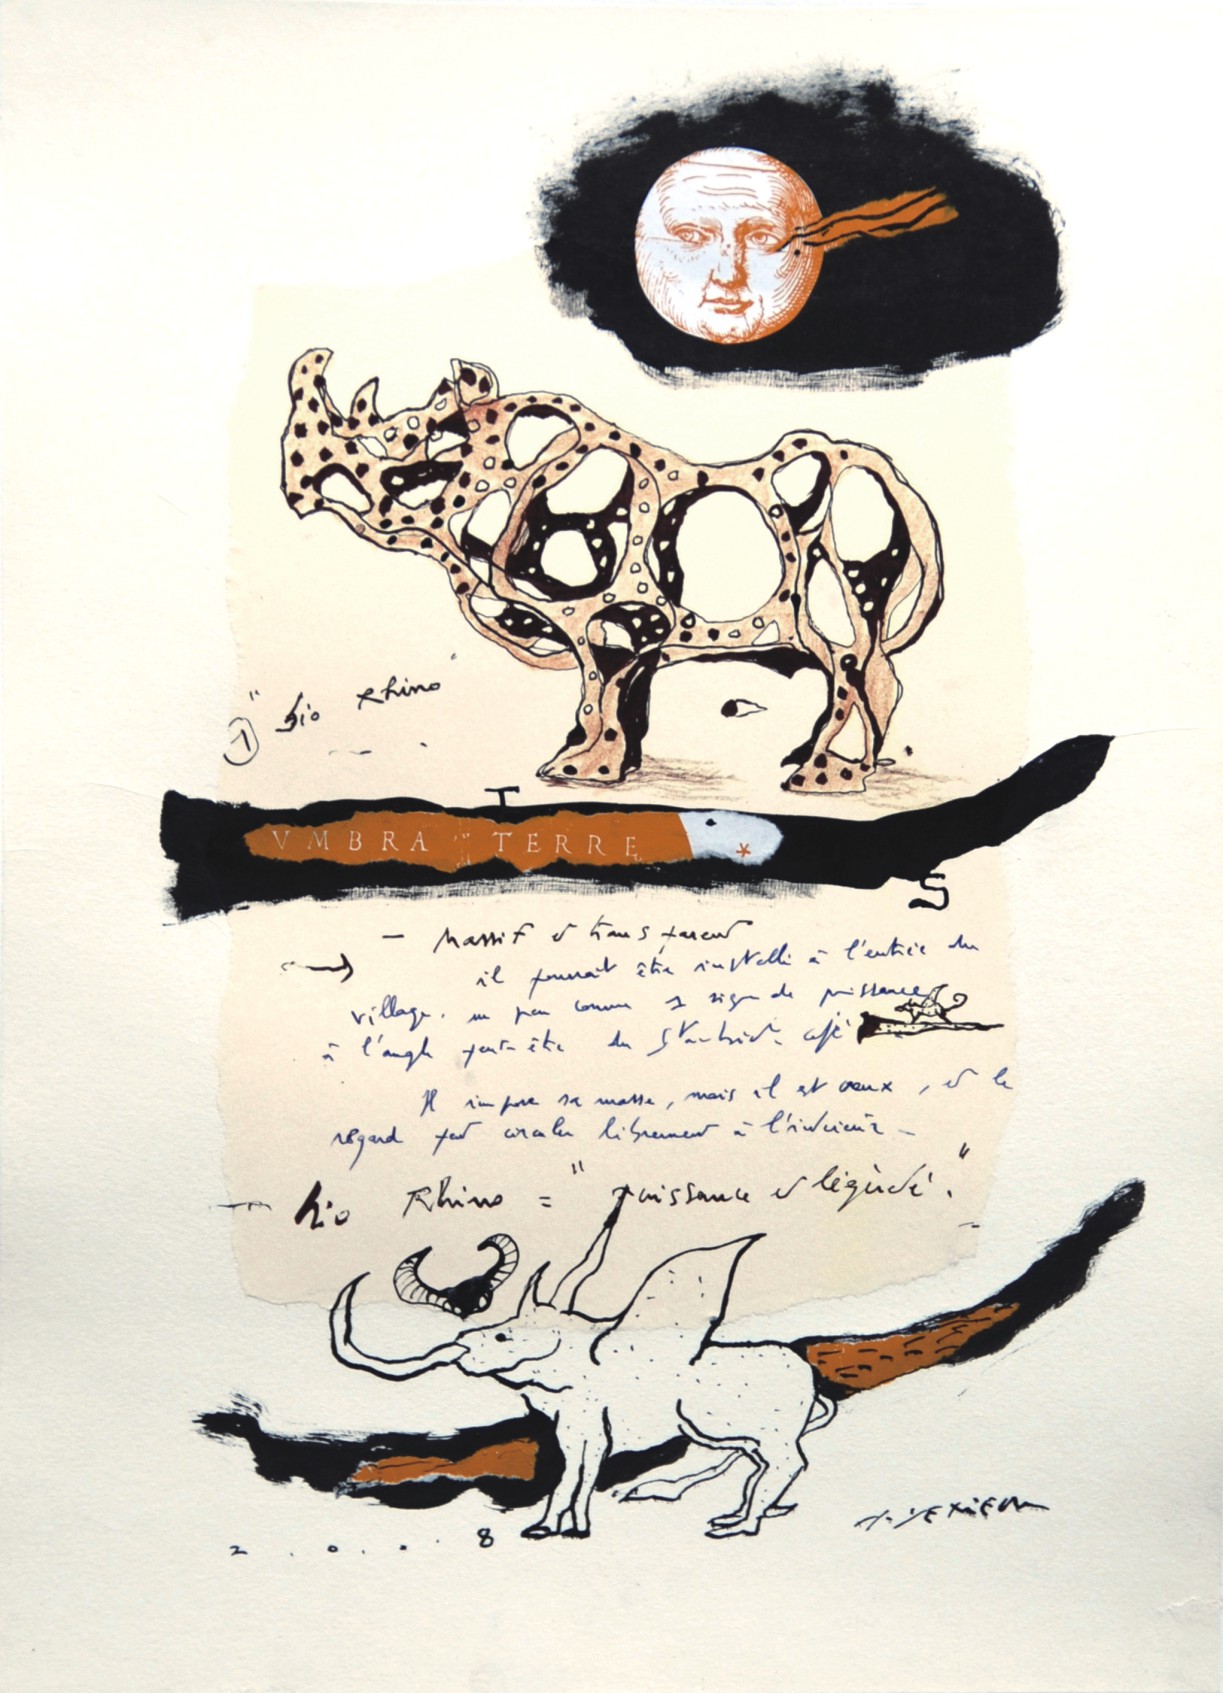 " bio Rhino
1
T
VMBRA TERRE
S
- Massif et transparent
il pourrait être installé à l'entrée du
village. un peu comme 1 signe de puissance
à l'angle peut-être du café
Il impose sa masse, mais il est creux, et le
regard peut circuler librement à l'intérieur -
bio Rhino = "puissance et légèreté."
2.0..8